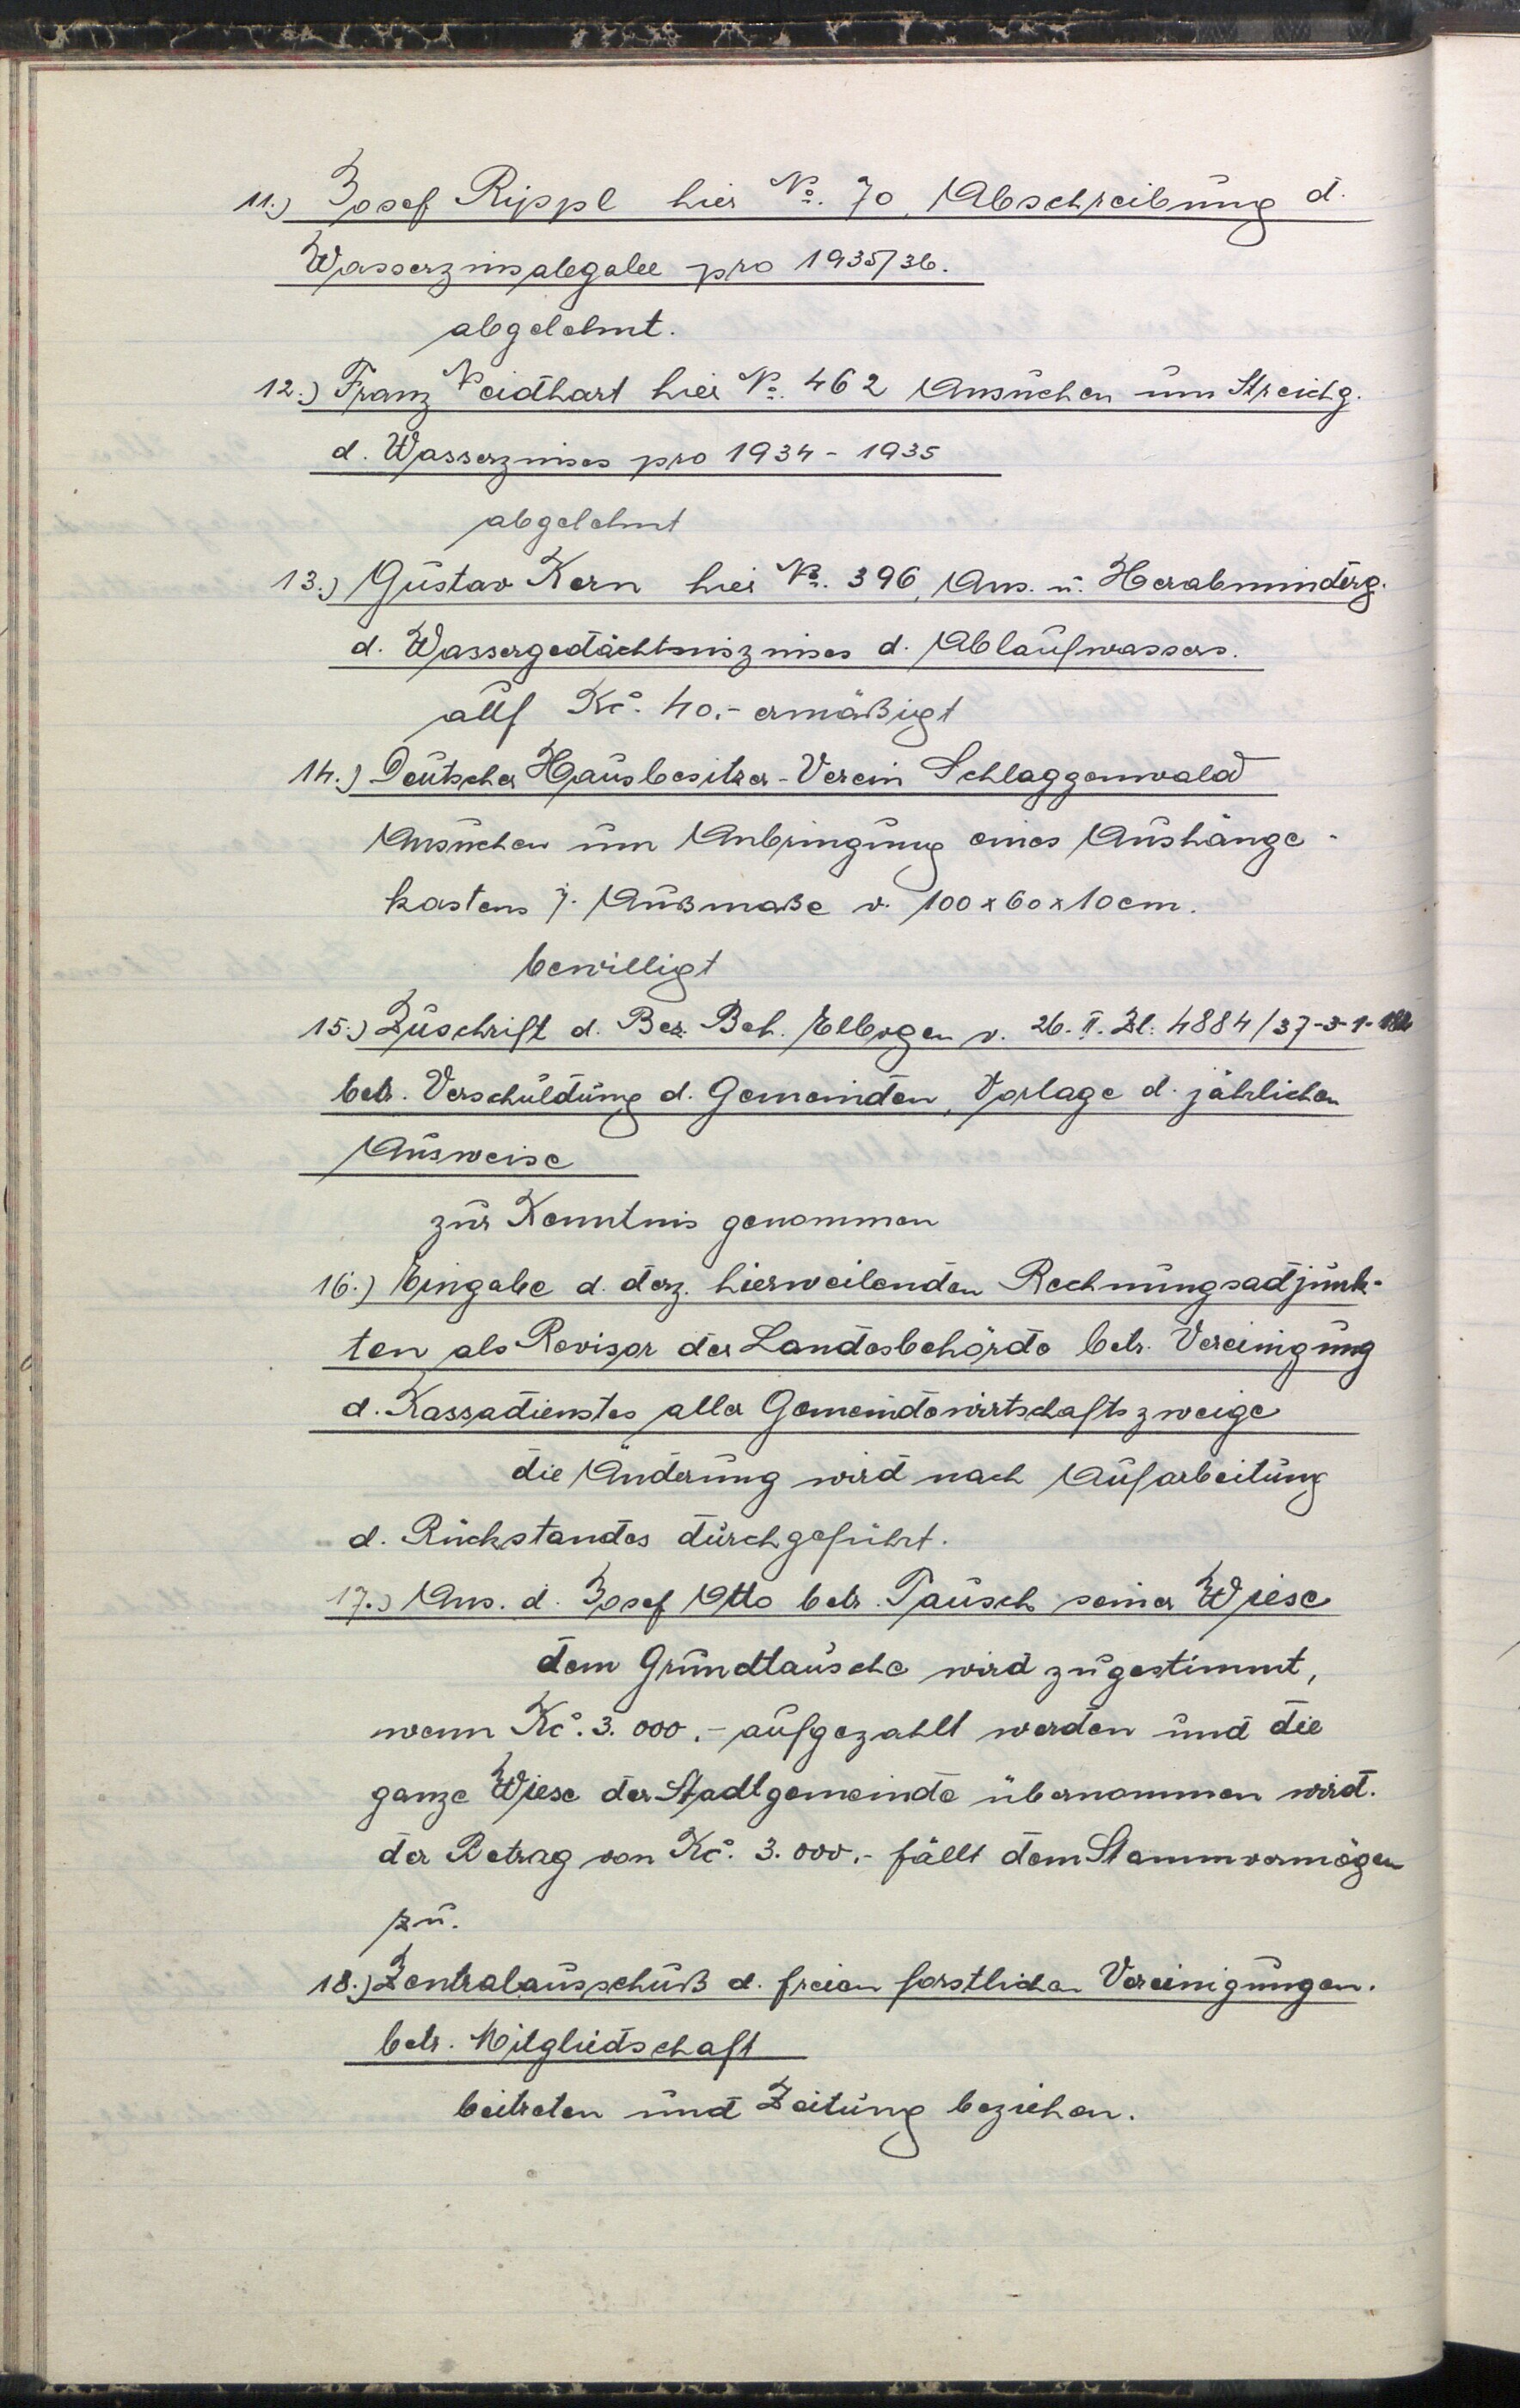 11.) Josef Rippl hier No. 70, Abschreibung d.
Wasserzinsabgabe pro 1935/36.
abgelehnt.
12.) Franz Neidhart hier No. 462 Ansuchen um Streichg.
d. Wasserzinses pro 1934-1935
abgelehnt
13.) Gustav Kern hier No. 396, Ans. u. Herabminderg.
d. Wassergedächtniszinses d. Ablaufwassers.
auf Kč. 40.- ermäßigt
14.) Deutscher Hausbesitzer-Verein Schlaggenwald
Ansuchen um Anbringung eines Aushänge-
kastens j. Außmaße v. 100x60x10cm.
bewilligt
15.) Zuschrift d. Bez. Beh. Elbogen v. 26. II. Zl. 4884/37-3-1-
betr. Verschuldung d. Gemeinden, Vorlage d. jährlichen
Ausweise
zur Kenntnis genommen
16.) Eingabe d. derz. hierweilenden Rechnungsadjunk-
ten als Revisor der Landesbehörde betr. Vereinigung
d. Kassadienstes aller Gemeindewirtschaftszweige
die Änderung wird nach Aufarbeitung
d. Rückstandes durchgeführt.
17.) Ans. d. Josef Otto betr. Tausch seiner Wiese
dem Grundtausche wird zugestimmt,
wenn Kč. 3.000.- aufgezahlt werden und die
ganze Wiese der Stadtgemeinde übernommen wird.
der Betrag von Kč. 3.000.- fällt dem Stammvermögen
zu.
18.) Zentralausschuß d. freien forstlichen Vereinigungen.
betr. Mitgliedschaft
beitreten und Zeitung beziehen.